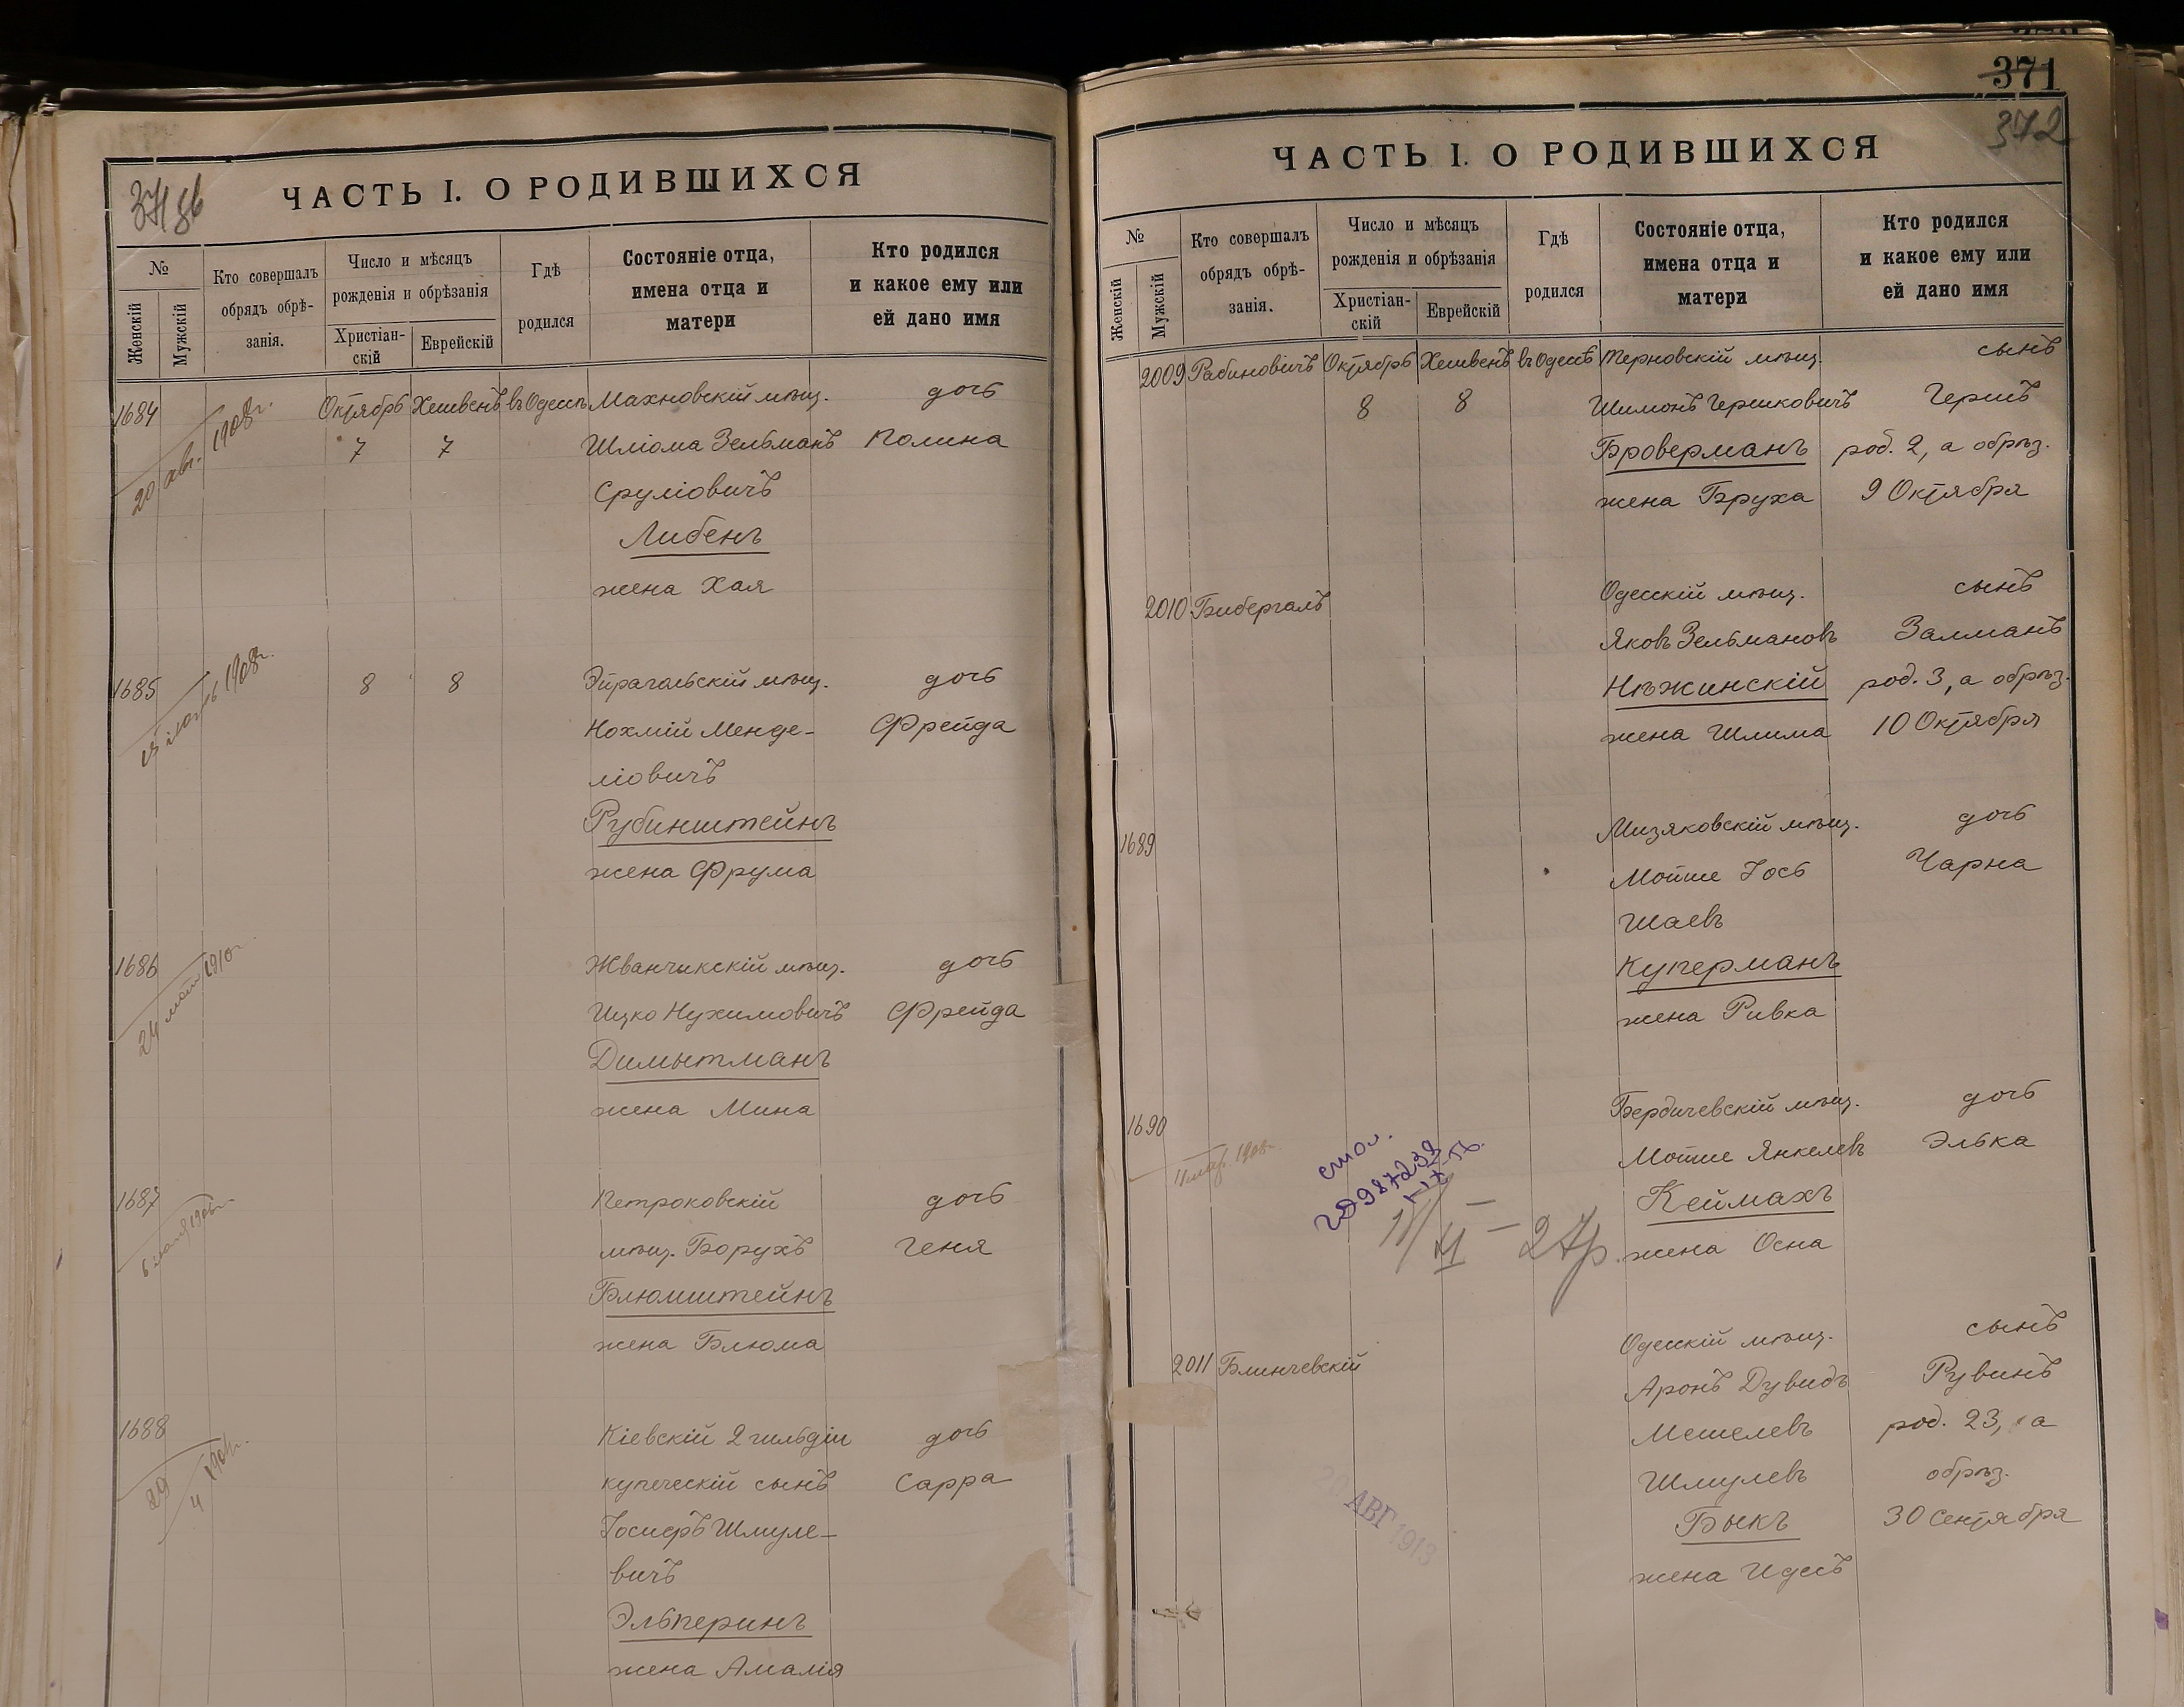 371 об
ЧАСТЬ I. О РОДИВШИХСЯ
№
Женскій
Мужскій
Кто совершалъ
обрядъ обрѣ-
занія.
Число и мѣсяцъ
рожденія и обрѣзанія
Христіан-
скій
Еврейскій
Гдѣ
родился
Состояніе отца,
имена отца и
матери
Кто родился
и какое ему или
ей дано имя
1684 Октябрь Хешвенъ въ Одессѣ Махновскій мѣщ. дочь
20 авг. 1908г.
7 7 Шліома Зельманъ Полина
Сруліовичъ
Либенъ
жена Хая
1685 8 8 Эйрагальскій мѣщ. дочь
1908г.
Нохмій Менде- Фрейда
ліовичъ
Рубинштейнъ
жена Фрума
1686 Жванчикскій мѣщ. дочь
24 1910г.
Ицко Нухимовичъ Фрейда
Димытманъ
жена Мина
1687 Петроковскій дочь
6
мѣщ. Борухъ Геня
Блюмштейнъ
жена Блюма
1688 Кіевскій 2 гильдіи дочь
29
4
купеческій сынъ Сарра
Іосифъ Шмуле-
вичъ
Эльперинъ
жена Амалія
371
372
ЧАСТЬ I. О РОДИВШИХСЯ
№
Женскій
Мужскій
Кто совершалъ
обрядъ обрѣ-
занія.
Число и мѣсяцъ
рожденія и обрѣзанія
Христіан-
скій
Еврейскій
Гдѣ
родился
Состояніе отца,
имена отца и
матери
Кто родился
и какое ему или
ей дано имя
2009 Рабиновичъ Октябрь Хешвенъ въ Одессѣ Терновскій мѣщ. сынъ
8 8 Шимонъ Гершковичъ Гершъ
Броверманъ род. 2, а обрѣз.
жена Бруха 9 Октября
2010 Бибергалъ Одесскій мѣщ. сынъ
Яковъ Зельмановъ Залманъ
Нѣжинскій род. 3, а обрѣз.
жена Шлима 10 Октября
1689 Мизяковскій мѣщ. дочь
Мотше Іось Чарна
Шаевъ
Куперманъ
жена Ривка
1690 Бердичевскій мѣщ. дочь
11 мар. 1908г.
Мотше Янкелевъ Элька
Кеймахъ
жена Осна
2011 Блинчевскій Одесскій мѣщ. сынъ
Аронъ Дувидъ Рувинъ
Мешелевъ род. 23, а
Шмулевъ обрѣз.
Быкъ 30 Сентября
жена Идесъ
АВГ 1913